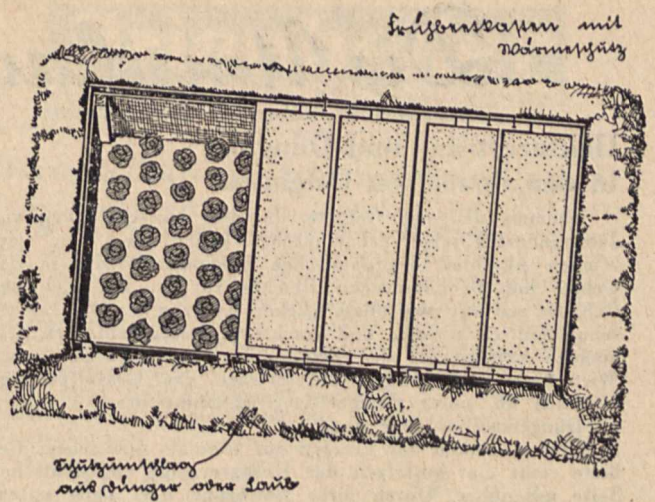 Frühbeetkasten mit
Wärmeschutz
Schutzumschlag
aus Dünger oder Laub